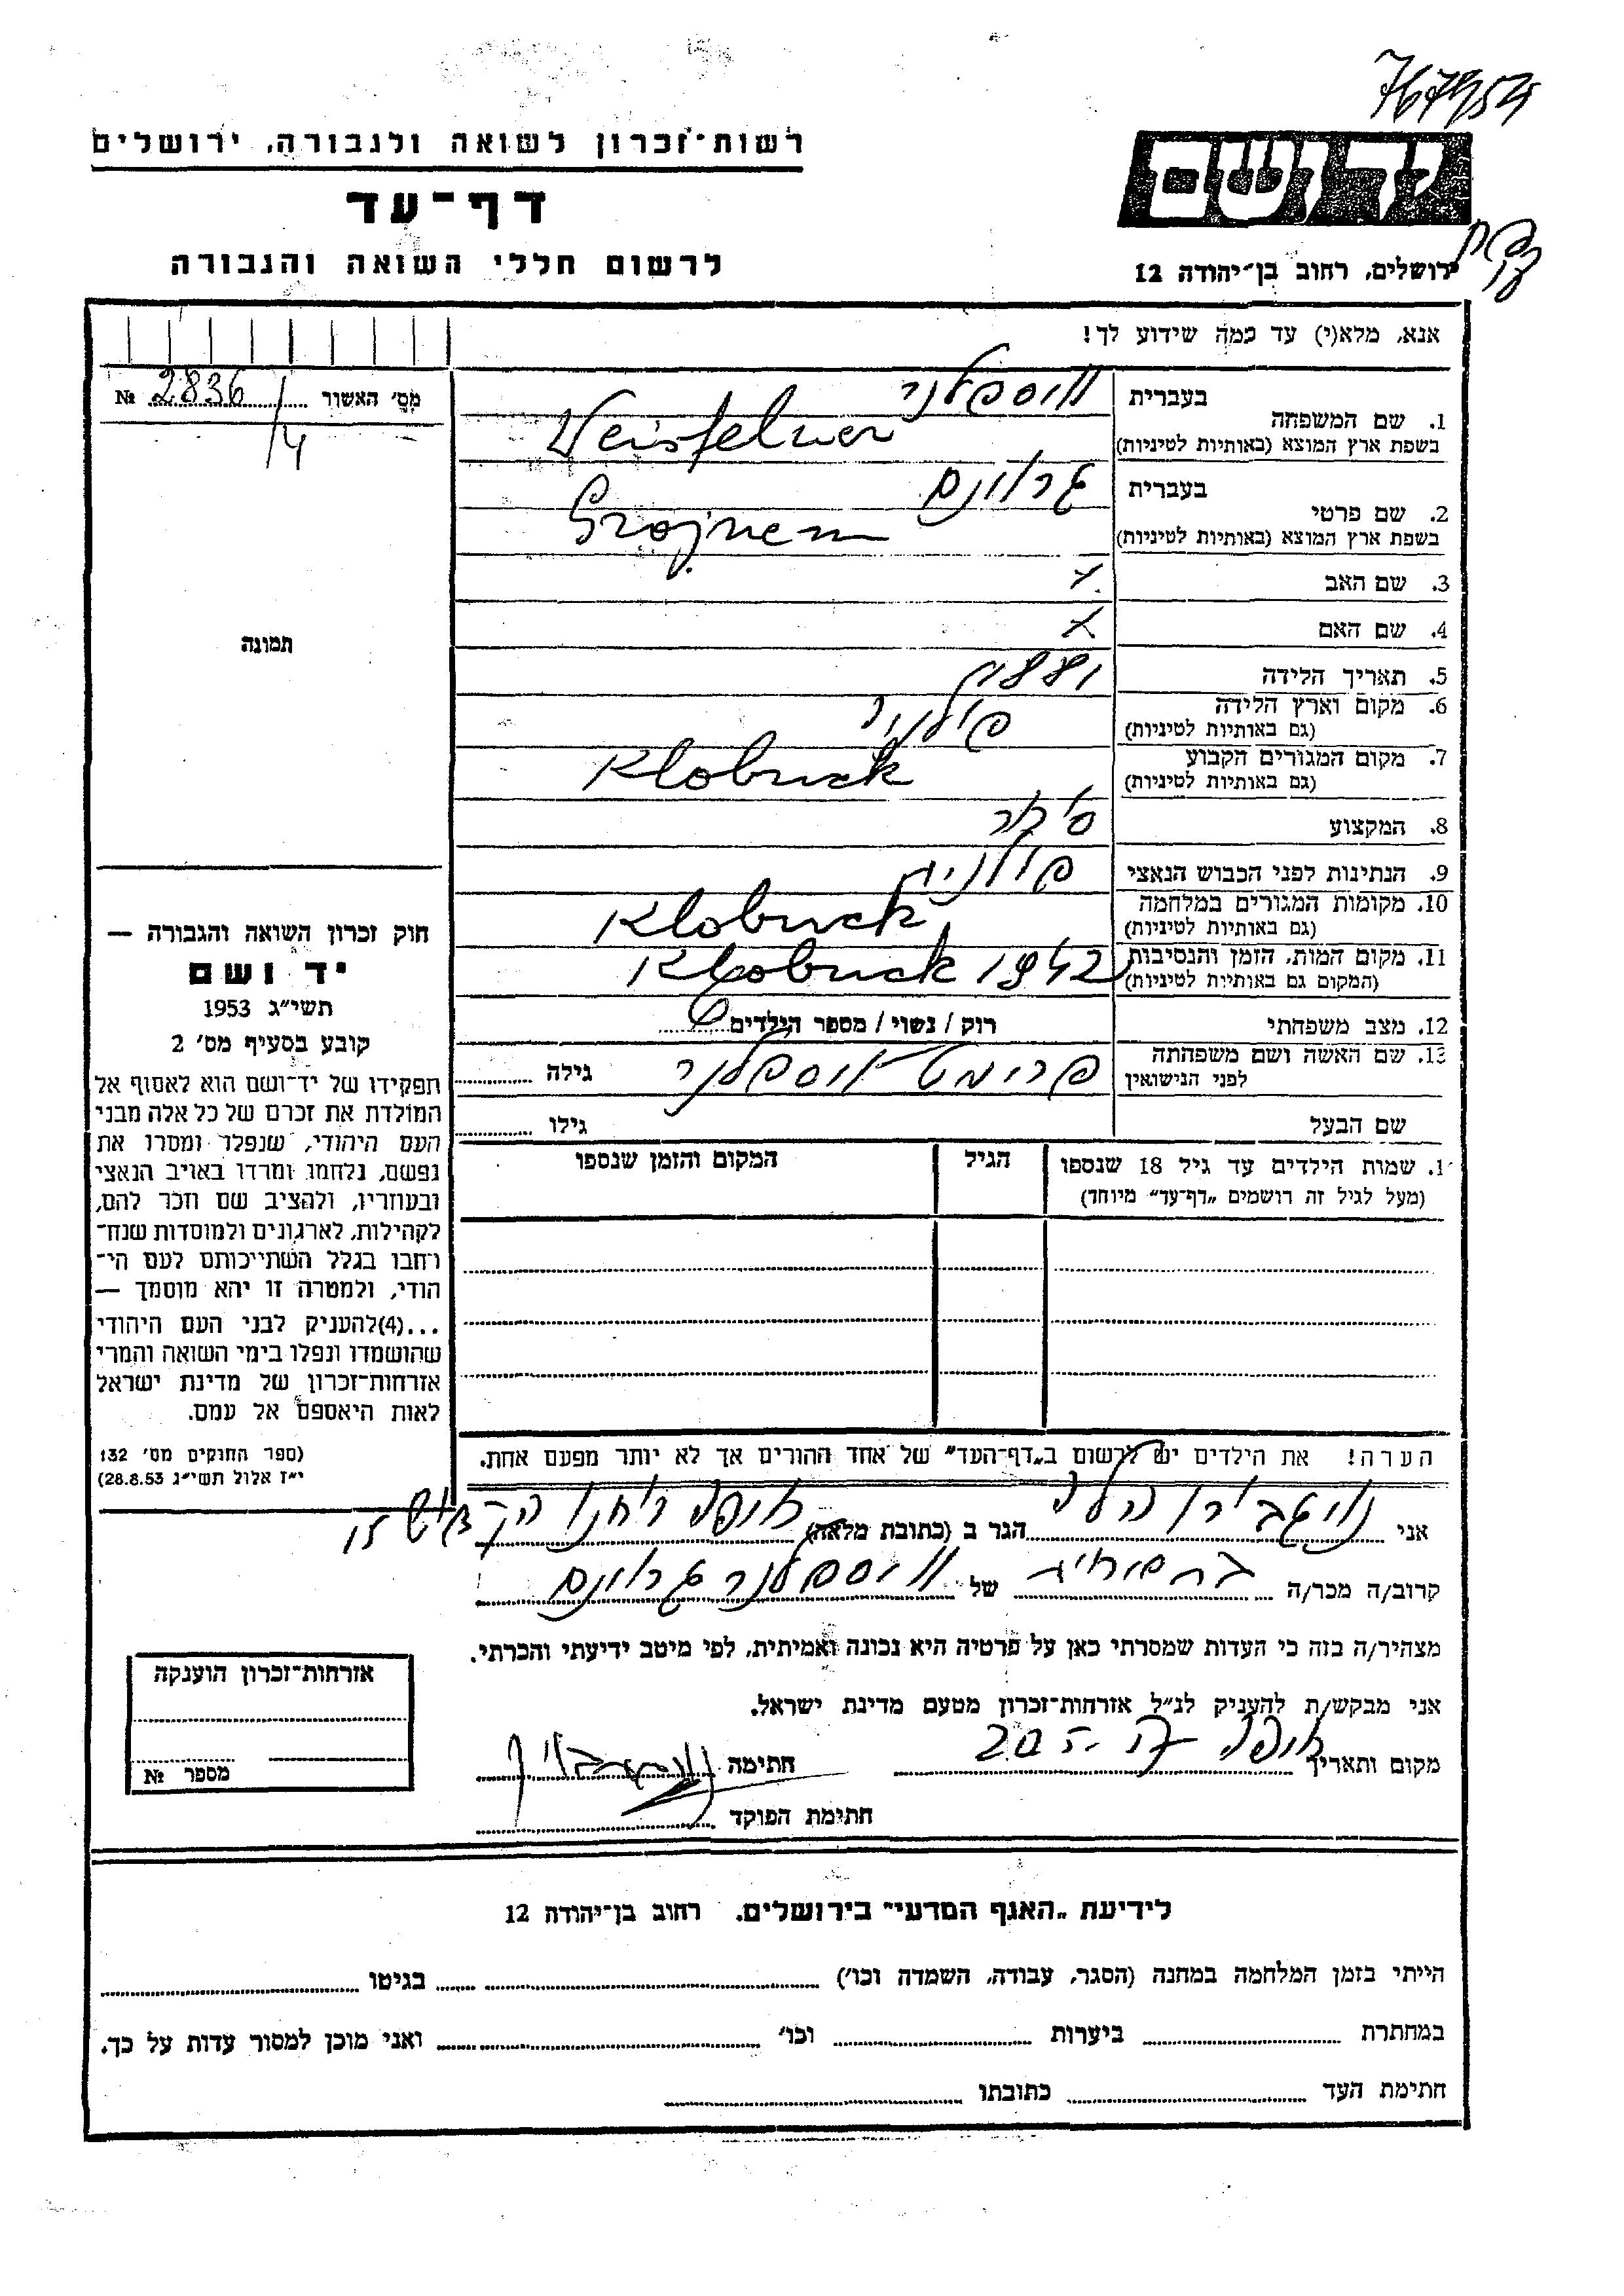 רשות־זכרון לשואה ולגבורה, ירושלים
דף־עד
לרשום חללי השואה והגבורה
יד ושם
ירושלים, רחוב בן־יהודה 12
אנא, מלא(י) עד כמה שידוע לך!
מס׳ האשור 2836/4 №
תמונה
1. שם המשפחה בעברית
בשפת ארץ המוצא (באותיות לטיניות) Weisfelner
2. שם פרטי בעברית גרוינם
בשפת ארץ המוצא (באותיות לטיניות) Grojnem
3. שם האב
4. שם האם
5. תאריך הלידה 1881
6. מקום וארץ הלידה
(גם באותיות לטיניות)
7. מקום המגורים הקבוע Klobuck
(גם באותיות לטיניות)
8. המקצוע
9. הנתינות לפני הכבוש הנאצי פולנית
10. מקומות המגורים במלחמה Klobuck
(גם באותיות לטיניות)
11. מקום המות, הזמן והנסיבות Klobuck 1942
(המקום גם באותיות לטיניות)
12. מצב משפחתי רוק / נשוי / מספר הילדים
13. שם האשה ושם משפחתה
לפני הנישואין גילה
שם הבעל גילו
1. שמות הילדים עד גיל 18 שנספו הגיל המקום והזמן שנספו
(מעל לגיל זה רושמים „דף־עד״ מיוחד)
הערה! את הילדים יש לרשום ב„דף־העד״ של אחד ההורים אך לא יותר מפעם אחת.
חוק זכרון השואה והגבורה —
יד ושם
תשי״ג 1953
קובע בסעיף מס׳ 2
תפקידו של יד־ושם הוא לאסוף אל
המולדת את זכרם של כל אלה מבני
העם היהודי, שנפלו ומסרו את
נפשם, נלחמו ומרדו באויב הנאצי
ובעוזריו, ולהציב שם וזכר להם,
לקהילות, לארגונים ולמוסדות שנח־
רחבו בגלל השתייכותם לעם הי־
הודי, ולמטרה זו יהא מוסמך —
...(4)להעניק לבני העם היהודי
שהושמדו ונפלו בימי השואה והמרי
אזרחות־זכרון של מדינת ישראל
לאות היאספם אל עמם.
(ספר החוקים מס׳ 132
י״ז אלול תשי״ג 28.8.53)
אני הגר ב (כתובת מלאה)
קרוב/ה מכר/ה של
מצהיר/ה בזה כי העדות שמסרתי כאן על פרטיה היא נכונה ואמיתית, לפי מיטב ידיעתי והכרתי.
אני מבקש/ת להעניק לנ״ל אזרחות־זכרון מטעם מדינת ישראל.
מקום ותאריך חתימה
חתימת הפוקד
אזרחות־זכרון הוענקה
מספר №
לידיעת „האגף המדעי״ בירושלים, רחוב בן־יהודה 12
הייתי בזמן המלחמה במחנה (הסגר, עבודה, השמדה וכו׳) בגיטו
במחתרת ביערות וכו׳ ואני מוכן למסור עדות על כך.
חתימת העד כתובתו